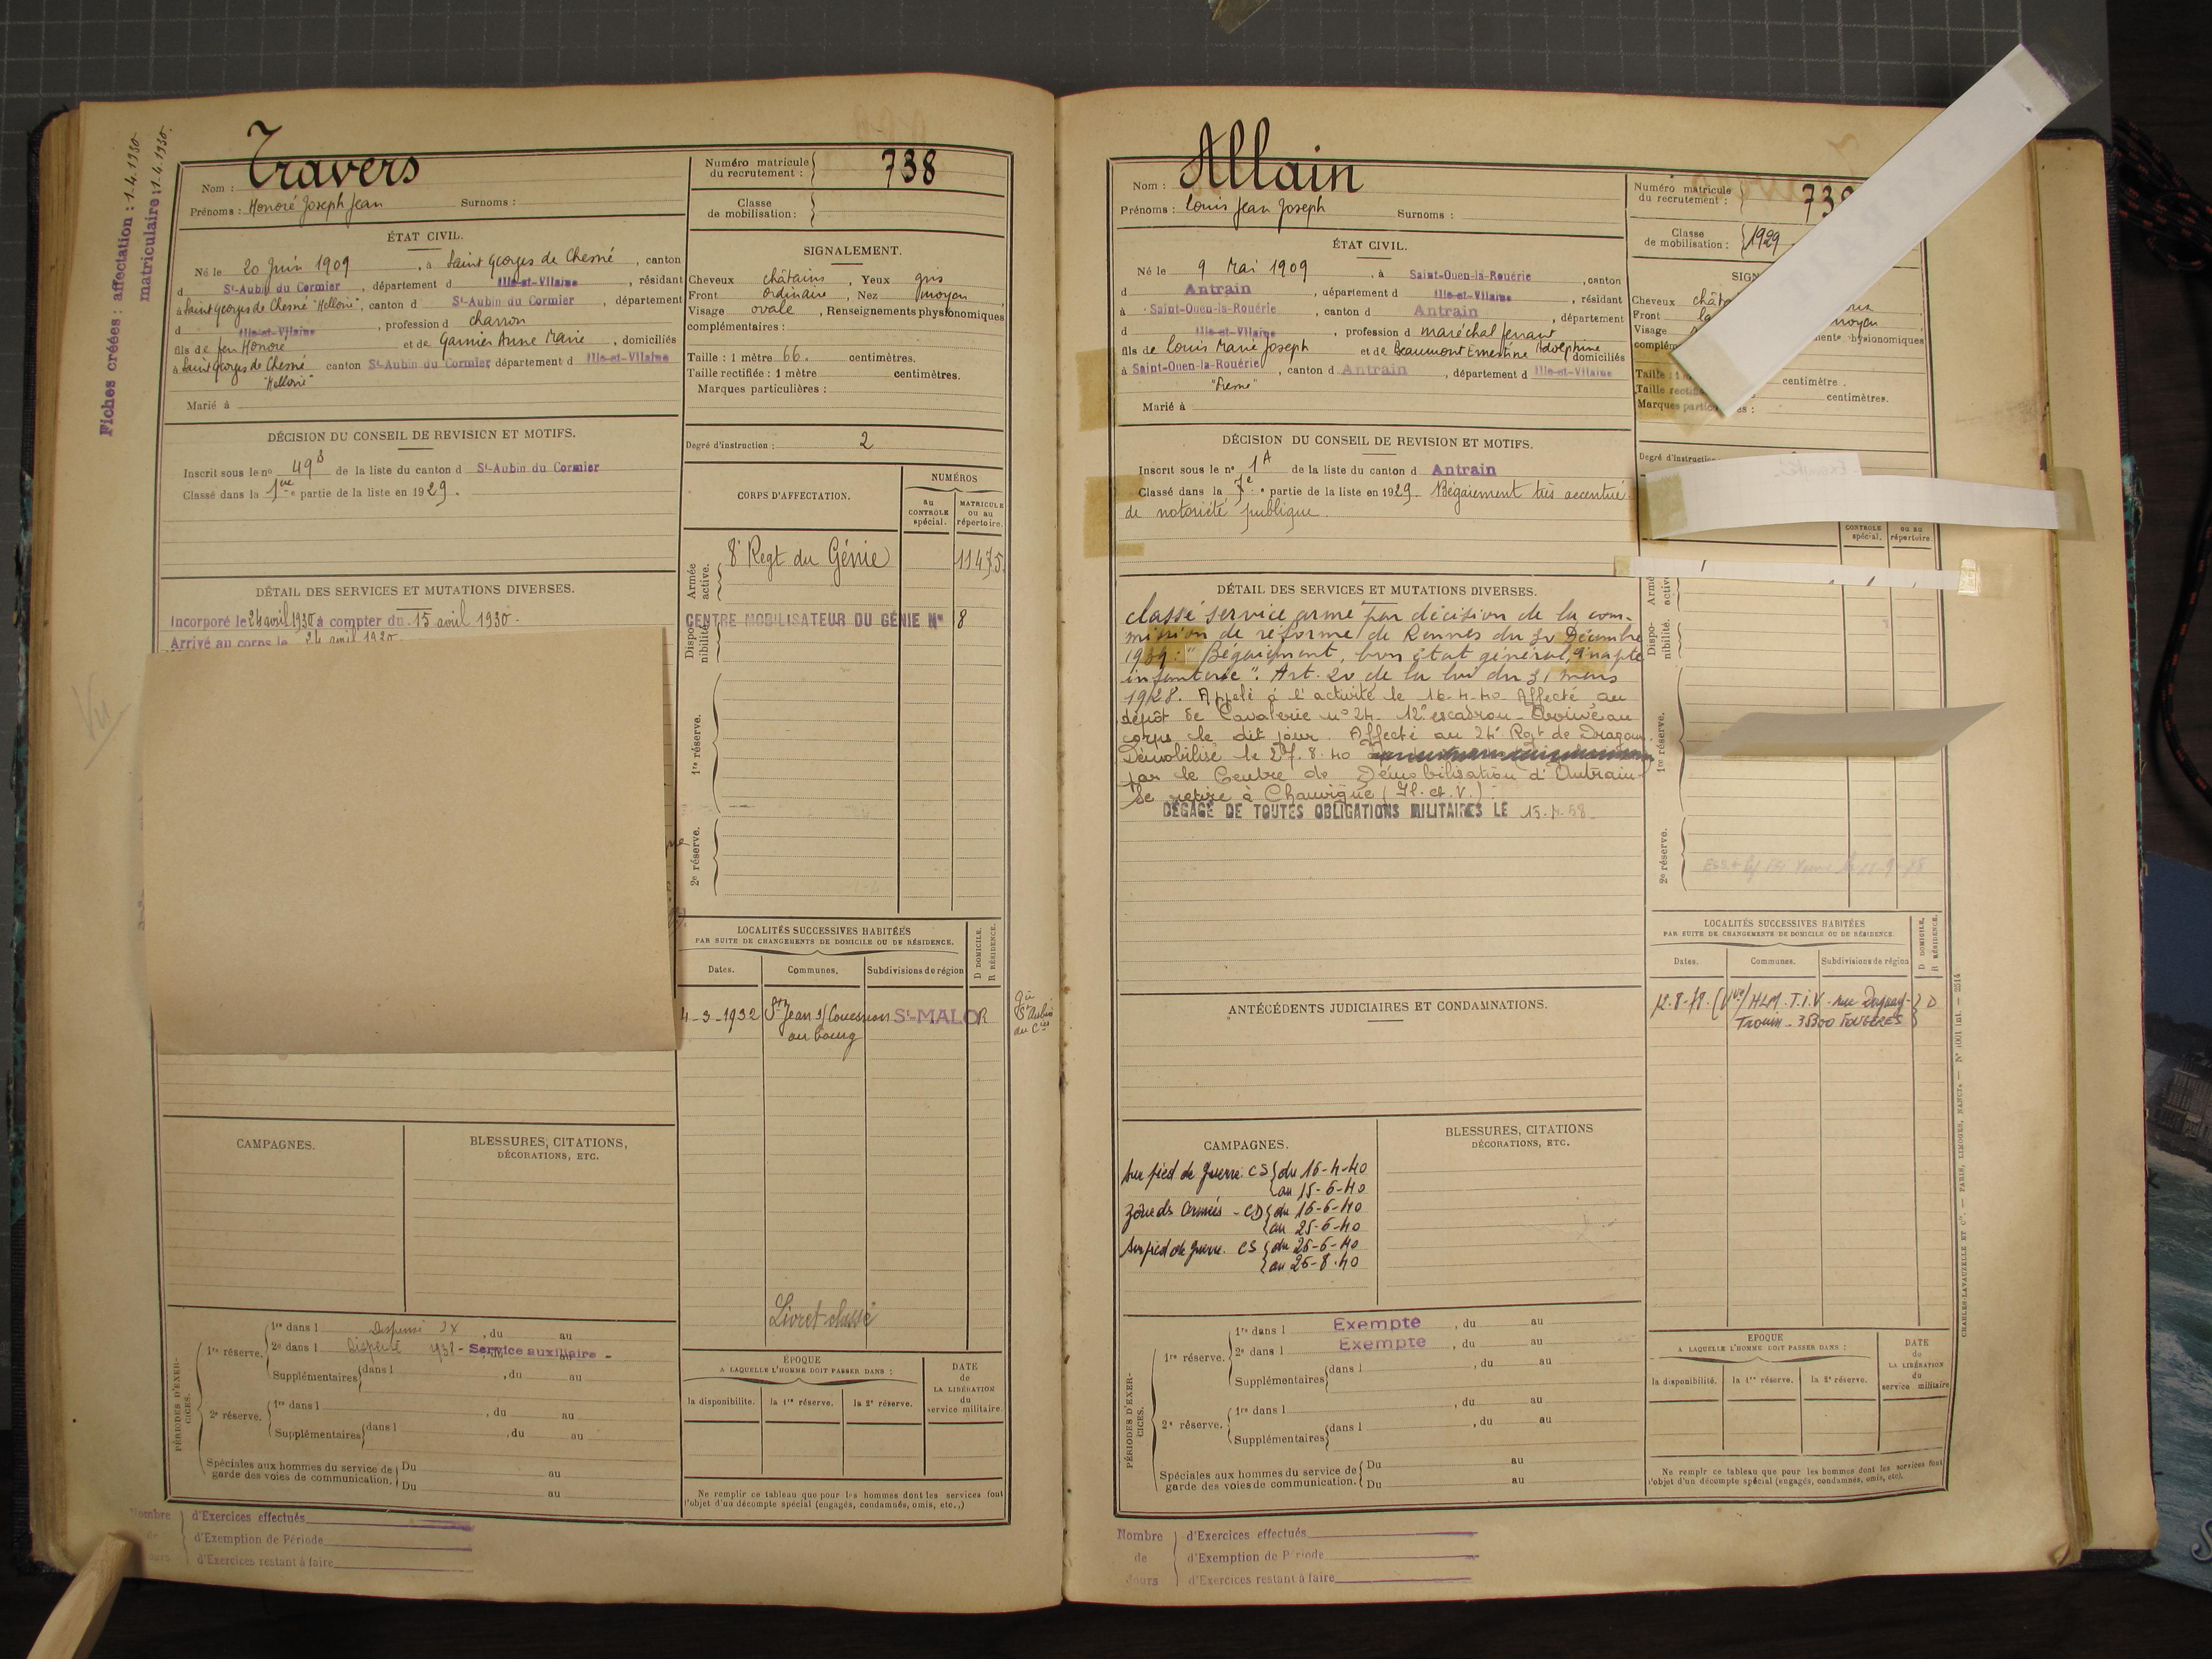 Fiches créées : affectation : 1-4-1930
matriculaire : 1-4-1930.
Nom : Travers
Prénoms : Honoré Joseph Jean Surnoms :
Numéro matricule du recrutement : 738
Classe de mobilisation :
ÉTAT CIVIL.
Né le 20 Juin 1909, à Saint Georges de Chesné, canton
d St-Aubin du Cormier, département d Ille-et-Vilaine, résidant
à Saint Georges de Chesné "Hellorie", canton d St-Aubin du Cormier, département
d Ille-et-Vilaine, profession d charron
fils de feu Honoré et de Garnier Anne Marie, domiciliés
à Saint Georges de Chesné canton St-Aubin du Cormier, département d Ille-et-Vilaine
"Hellorie"
Marié à
SIGNALEMENT.
Cheveux châtains, Yeux gris
Front ordinaire, Nez moyen,
Visage ovale, Renseignements physionomiques
complémentaires :
Taille : 1 mètre 66. centimètres.
Taille rectifiée : 1 mètre centimètres.
Marques particulières :
Degré d'instruction : 2
DÉCISION DU CONSEIL DE REVISION ET MOTIFS.
Inscrit sous le no 49B de la liste du canton d St-Aubin du Cormier
Classé dans la 1re partie de la liste en 1929.
CORPS D'AFFECTATION.
NUMÉROS
au CONTROLE spécial.
MATRICULE ou au répertoire.
Armée active.
8e Regt du Génie 11475
Disponibilité.
CENTRE MOBILISATEUR DU GÉNIE No 8
1re réserve.
2e réserve.
DÉTAIL DES SERVICES ET MUTATIONS DIVERSES.
Incorporé le 24 avril 1930 à compter du 15 avril 1930.
Arrivé au corps le
Vu
LOCALITÉS SUCCESSIVES HABITÉES
PAR SUITE DE CHANGEMENTS DE DOMICILE OU DE RÉSIDENCE.
Dates. Communes. Subdivisions de région
D DOMICILE.
R RÉSIDENCE.
4-3-1932 St Jean s/ Couesnon St-MALO R
au bourg
Gie
St Aubin
du Cier
CAMPAGNES.
BLESSURES, CITATIONS,
DÉCORATIONS, ETC.
Livret classé
PÉRIODES D'EXERCICES.
1re réserve. 1re dans l Dispensé, du au
2e dans l Dispensé 1938 - Service auxiliaire -
Supplémentaires dans l, du au
2e réserve. 1re dans l, du au
Supplémentaires dans l, du au
Spéciales aux hommes du service de garde des voies de communication. Du au
Du au
ÉPOQUE
A LAQUELLE L'HOMME DOIT PASSER DANS :
la disponibilité. la 1re réserve. la 2e réserve.
DATE de LA LIBÉRATION du service militaire.
Ne remplir ce tableau que pour les hommes dont les services font
l'objet d'un décompte spécial (engagés, condamnés, omis, etc.,)
Nombre de Jours
d'Exercices effectués
d'Exemption de Période
d'Exercices restant à faire
Nom : Allain
Prénoms : Louis Jean Joseph Surnoms :
Numéro matricule du recrutement : 739
Classe de mobilisation : 1929
ÉTAT CIVIL.
Né le 9 Mai 1909, à Saint-Ouen-la-Rouërie, canton
d Antrain, département d Ille-et-Vilaine, résidant
à Saint-Ouen-la-Rouërie, canton d Antrain, département
d Ille-et-Vilaine, profession d maréchal ferrant
fils de Louis Marie Joseph et de Beaumont Ernestine Adolphine domiciliés
à Saint-Ouen-la-Rouërie, canton d Antrain, département d Ille-et-Vilaine
Marié à
Cheveux
Front
Visage
moyen
centimètre.
centimètres.
Marques
Degré d'instruction
DÉCISION DU CONSEIL DE REVISION ET MOTIFS.
Inscrit sous le no 1A de la liste du canton d Antrain
Classé dans la 7e partie de la liste en 1929. Bégaiement très accentué
de notoriété publique.
CONTROLE spécial.
ou au répertoire
DÉTAIL DES SERVICES ET MUTATIONS DIVERSES.
classé service armé par décision de la com-
mission de réforme de Rennes du 30 Décembre
1939 : "Bégaiement, bon état général, inapte
infanterie". Art. 20 de la loi du 31 mars
1928. Appelé à l'activité le 16-4-40 Affecté au
dépôt de Cavalerie no 24. 12e escadron - Arrivé au
corps le dit jour. Affecté au 24e Rgt de Dragons.
Démobilisé le 27.8.40
par le Centre de Démobilisation d'Antrain
Se retire à Chauvigné (Il. et. V.).
DÉGAGÉ DE TOUTES OBLIGATIONS MILITAIRES LE 15.4.58
Disponibilité.
1re réserve.
2e réserve.
ANTÉCÉDENTS JUDICIAIRES ET CONDAMNATIONS.
LOCALITÉS SUCCESSIVES HABITÉES
PAR SUITE DE CHANGEMENTS DE DOMICILE OU DE RÉSIDENCE.
Dates. Communes. Subdivisions de région
D DOMICILE.
R RÉSIDENCE.
12.8.78. HLM. T.I.V. rue Duguay- D
Trouin - 35300 FOUGÈRES
CAMPAGNES.
Sur pied de guerre. CS du 16-4-40
au 15-6-40
Zone des Armées - CD du 16-6-40
au 25-6-40
Sur pied de guerre. CS du 26-6-40
au 26-8-40
BLESSURES, CITATIONS
DÉCORATIONS, ETC.
PÉRIODES D'EXERCICES.
1re réserve. 1re dans l Exempte, du au
2e dans l Exempte, du au
Supplémentaires dans l, du au
2e réserve. 1re dans l, du au
Supplémentaires dans l, du au
Spéciales aux hommes du service de garde des voies de communication. Du au
Du au
EPOQUE
A LAQUELLE L'HOMME DOIT PASSER DANS :
la disponibilité. la 1re réserve. la 2e réserve.
DATE de LA LIBÉRATION du service militaire
Ne remplir ce tableau que pour les hommes dont les services font
l'objet d'un décompte spécial (engagés, condamnés, omis, etc.)
CHARLES-LAVAUZELLE ET Cie. — PARIS, LIMOGES, NANCY.
Nombre de Jours
d'Exercices effectués
d'Exemption de Période
d'Exercices restant à faire